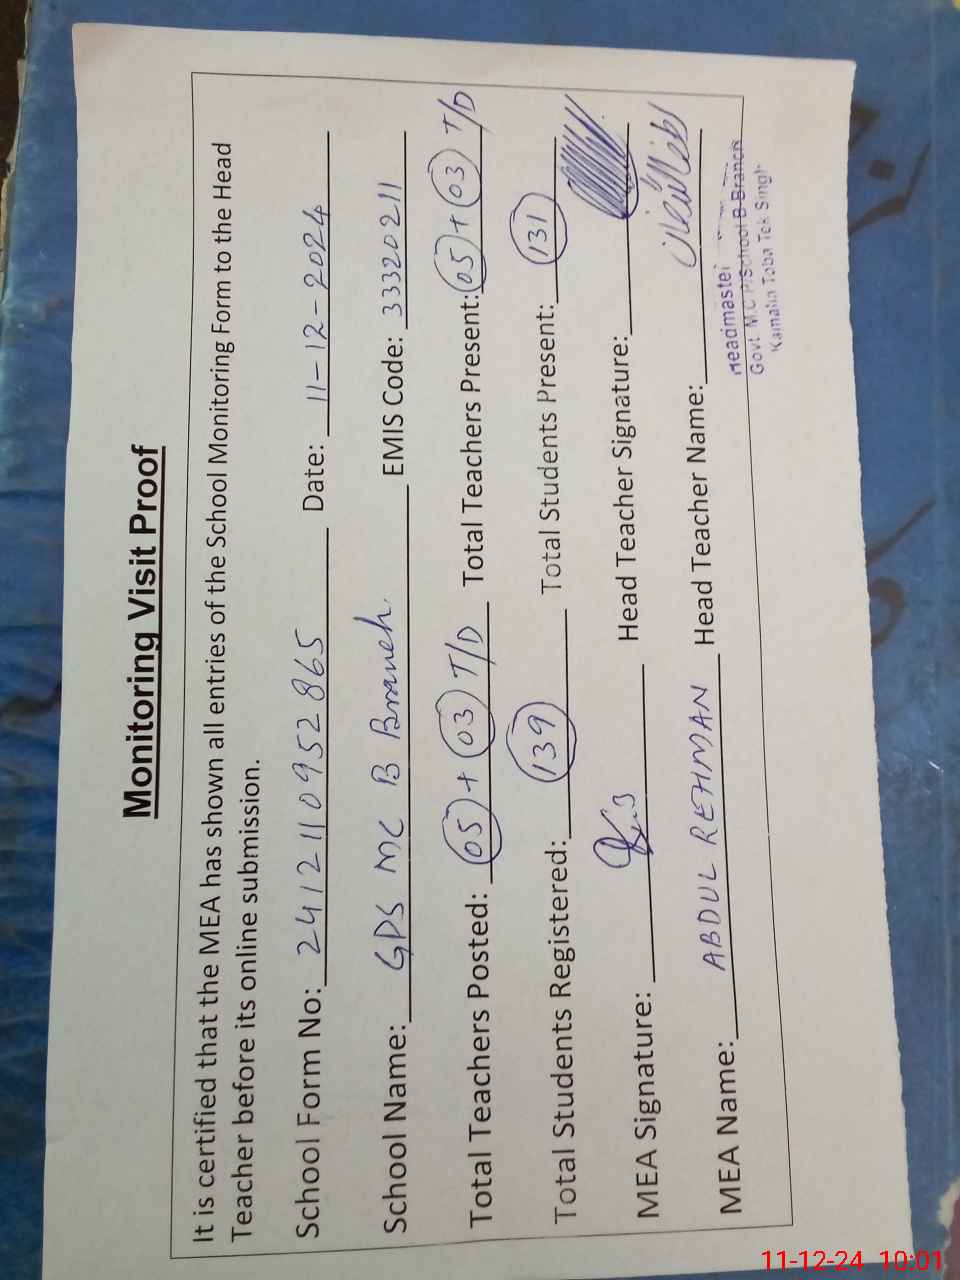 Monitoring Visit Proof
It is certified that the MEA has shown all entries of the School Monitoring Form to the Head
Teacher before its online submission.
School Form No: 241211 0952865 Date: 11-12-2024
School Name: GPS MC B Branch. EMIS Code: 33320211
Total Teachers Posted: 05 + 03 T/D Total Teachers Present: 05 + 03 T/D
Total Students Registered: 139 Total Students Present: 131
MEA Signature: Head Teacher Signature:
MEA Name: ABDUL REHMAN Head Teacher Name:
Headmaster
Govt M.C P/School B-Branch
Kamalia Toba Tek Singh
11-12-24 10:01